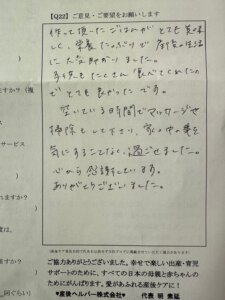 【Q22】ご意見・ご要望をお願いします
作って頂いたごはんが とても美味
しく、栄養たっぷりで 産後の生活
に大変助かりました。
子供もたくさん食べてくれたの
でとても良かったです。
空いている時間でマッサージや
掃除もして下さり、家の中の事を
気にすることなく、過ごせました。
心から感謝しています。
ありがとうございました。
ご協力ありがとうございました。幸せで楽しい出産・育児
サポートのために、すべての日本の母親と赤ちゃんの
ためにがんばります。愛があふれる産後ケアに！
**産後ヘルパー株式会社** 代表 明 素延
ますか？（複
サービス
れますか？
ますか？